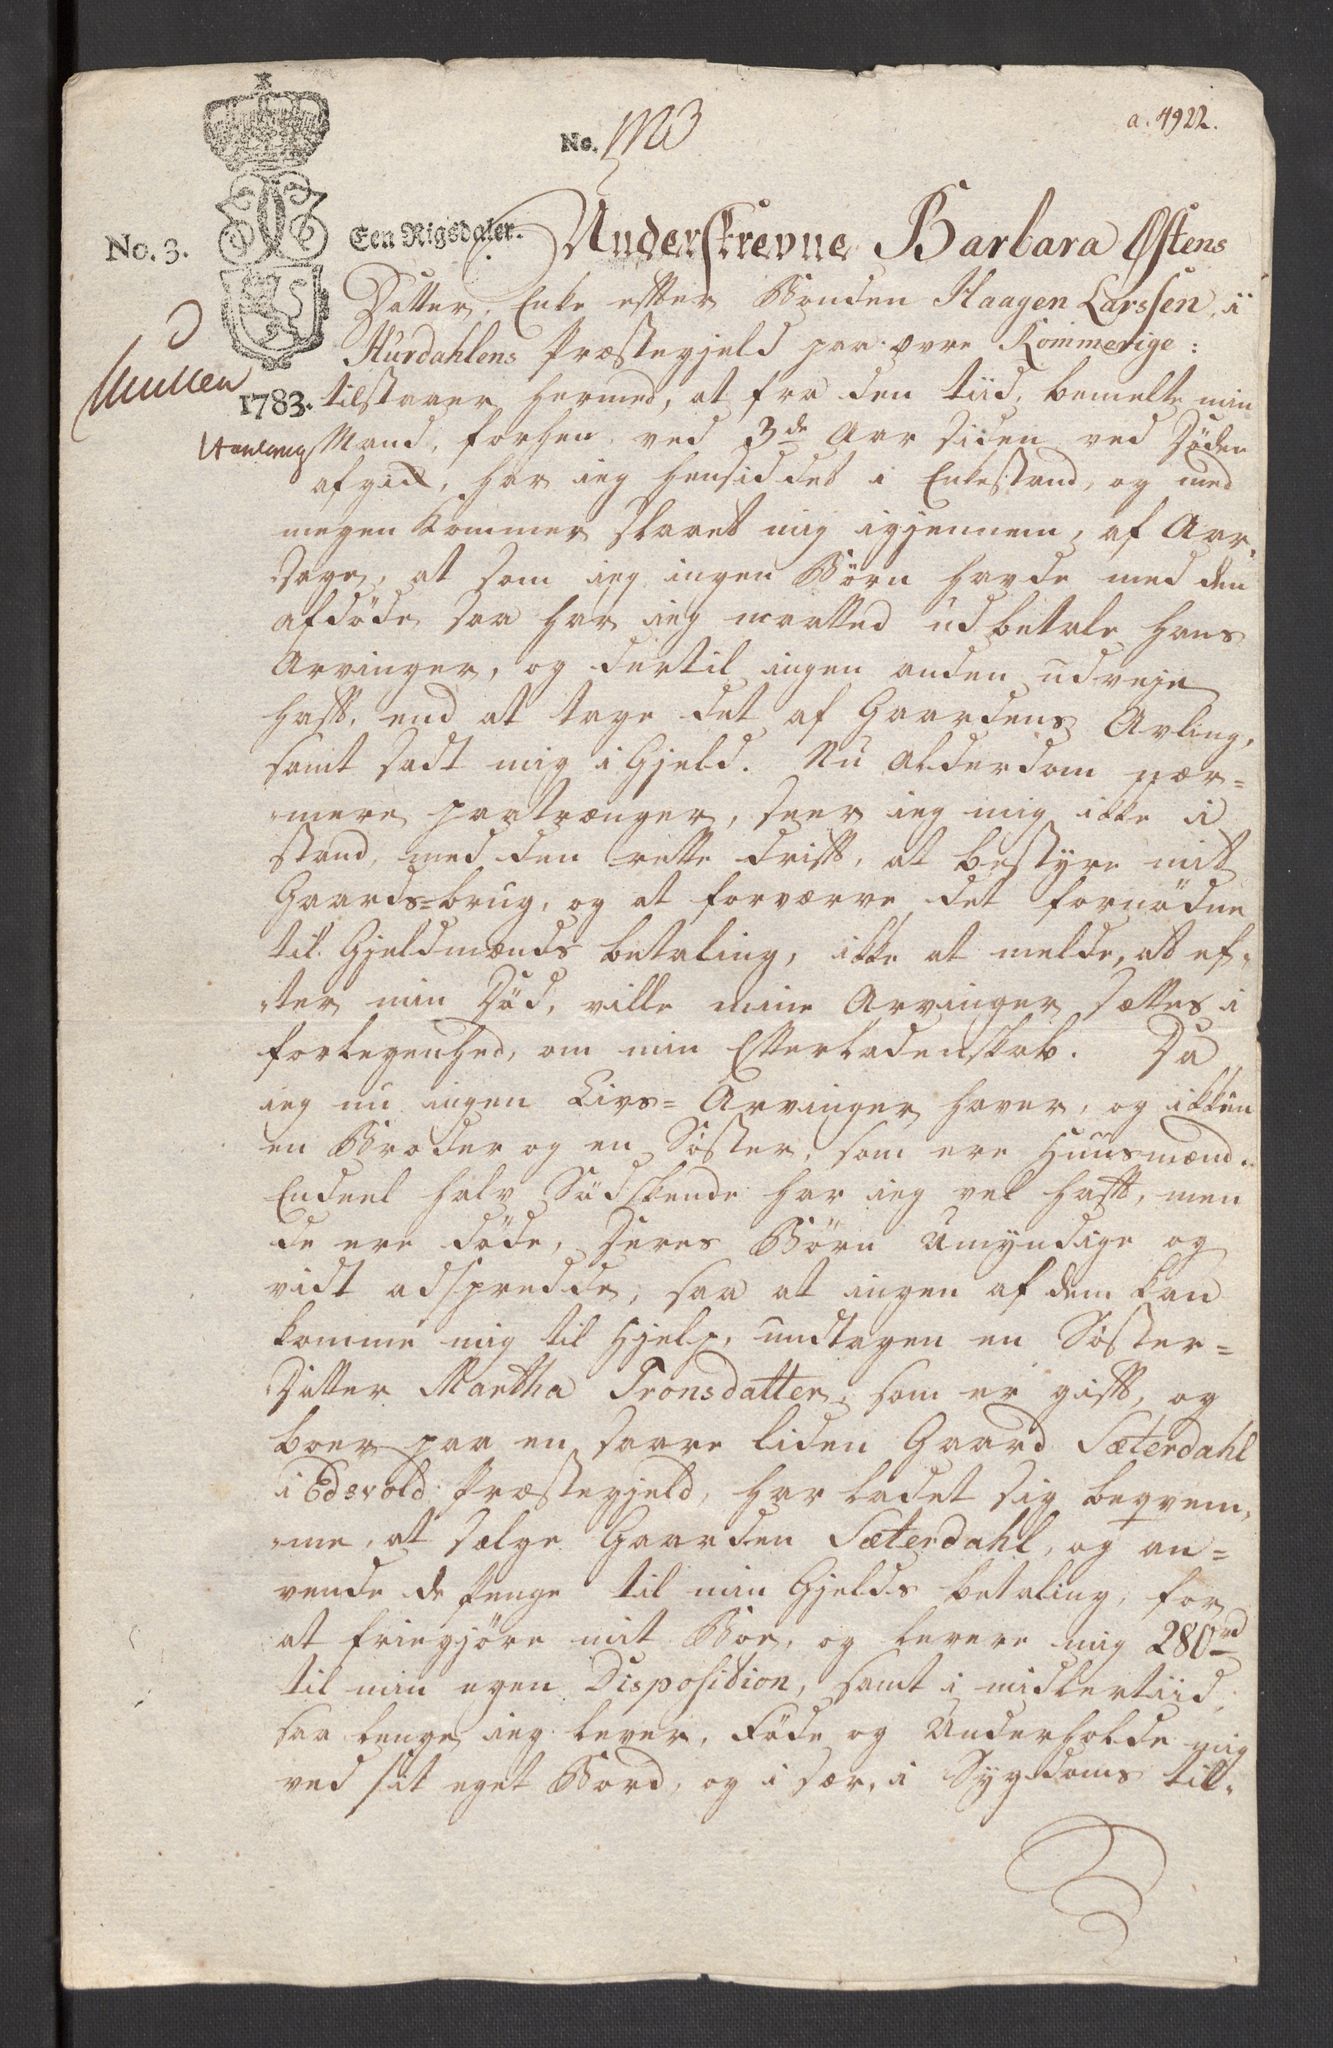 a. 4922.
No.
No. 3.
Een Rigsdaler.
1783.
Underskrevne Barbara Østens
Datter, Enke efter Bonden Haagen Larssen, i
Hurdahlens Præstegjeld paa øvre Rommerige:
tilstaaer hermed, at fra den tiid, bemelte min
Mand, forhen, ved 3de Aar siden ved Döden
afgik, har ieg hensiddet i Enkestand, og med
megen Kommer slaaet mig igjennem, af Aar„
sage, at som ieg ingen Börn havde med den
afdöde, saa har ieg maatted udbetale hans
Arvinger, og dertil ingen anden udveje
haft, end at tage det af Gaardens Avling,
samt sadt mig i Gjeld. Nu Alderdom nær=
„mere paatrænger, seer ieg mig ikke i
stand, med den rette drift, at bestyre mit
Gaards=brug, og at forværve det fornödne
til Gjeldmænds betaling, ikke at melde, at ef„
„ter min Död, ville mine Arvinger sættes i
forlegenhed, om min Efterladenskab. Da
ieg nu ingen Livs= Arvinger haver, og ikkun
en Broder og en Söster, som ere Huusmænd.
Endeel halv Södskende har ieg vel haft, men
de ere döde, Deres Börn Umyndige og
vidt adspredde, saa at ingen af dem kan
komme mig til Hjelp, undtagen en Söster=
Datter Martha Tronsdatter, som er gift, og
boer paa en saare liden Gaard Sæterdahl
i Edsvold Præstegjeld, har ladet sig beqvem„
„me, at sælge Gaarden Sæterdahl, og an=
vende de Penge til min Gjelds betaling, for
at friegjöre mit Boe, og levere mig 280rd
til min egen Disposition, samt i midlertiid,
saa lenge ieg lever, Föde og Underholde mig
ved sit eget Bord, og i sær, i Sygdoms til„